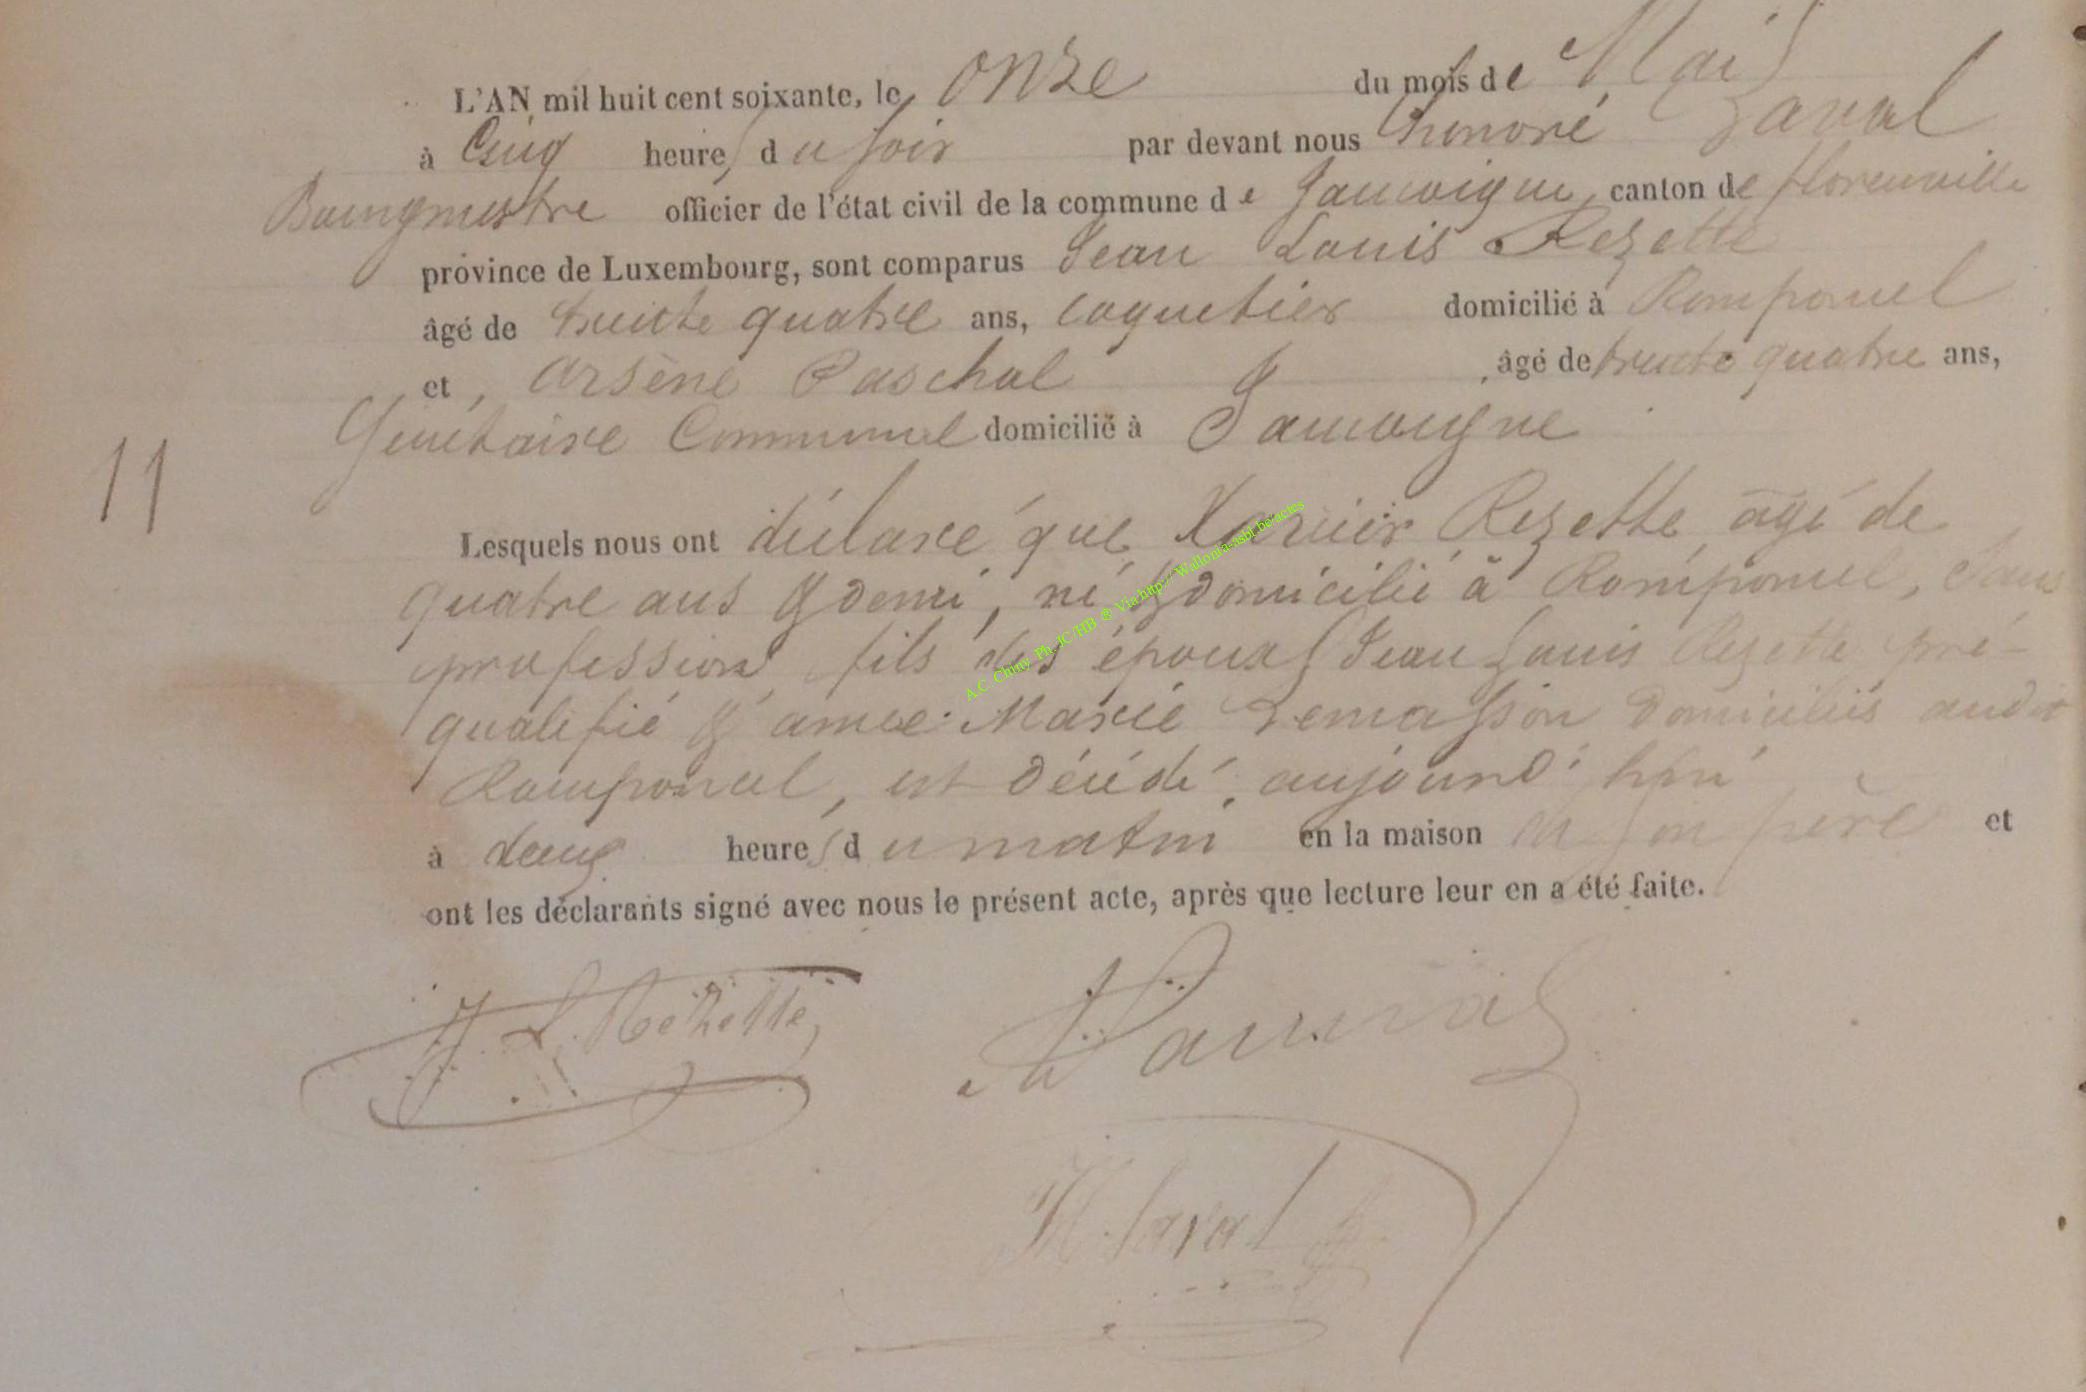 L'AN mil huit cent soixante, le onze du mois de Mai
à Cinq heures du soir par devant nous honoré Laval
Bourgmestre officier de l'état civil de la commune de Jamoigne, canton de florenville
province de Luxembourg, sont comparus Jean Louis Rezette
âgé de trente quatre ans, coquetier domicilié à Romponcel
et, Arsène Paschal, âgé de trente quatre ans,
Secrétaire Communal domicilié à Jamoigne
11
Lesquels nous ont déclaré que Xavier Rezette, âgé de
quatre ans & demi, né & domicilié à Romponcel, sans
profession, fils des époux Jean Louis Rezette pré-
qualifié & Marie domiciliés audit
Romponcel, est décédé, aujourd'hui
à deux heures du matin en la maison de son père et
ont les déclarants signé avec nous le présent acte, après que lecture leur en a été faite.
J. L. Rézette
H. Laval
A.C. Chiny Ph. JC/HB ® Via http://Wallonia-asbl.be-actes